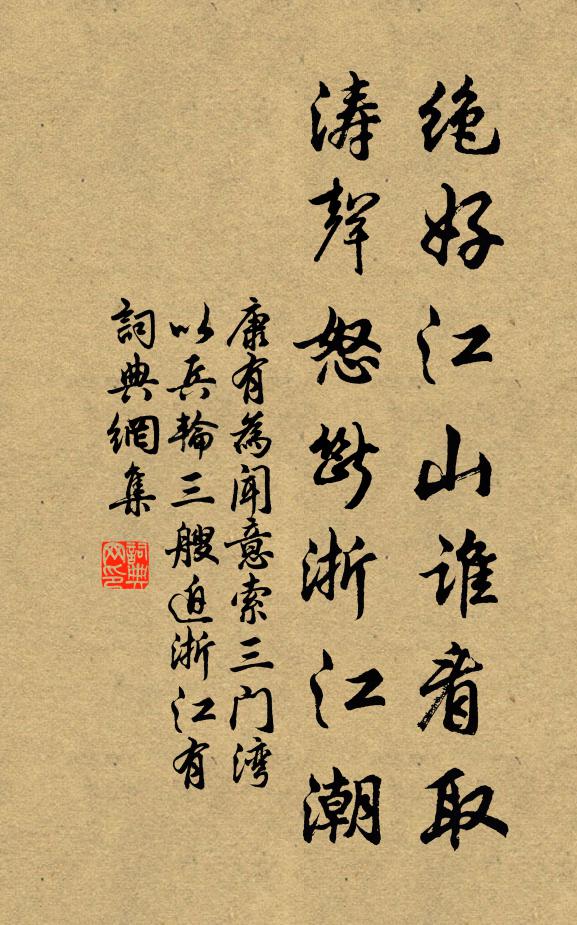 绝好江山谁看取
涛声怒断浙江潮
康有为闻意索三门湾
以兵轮三艘迫浙江有
词典网集
词典网印